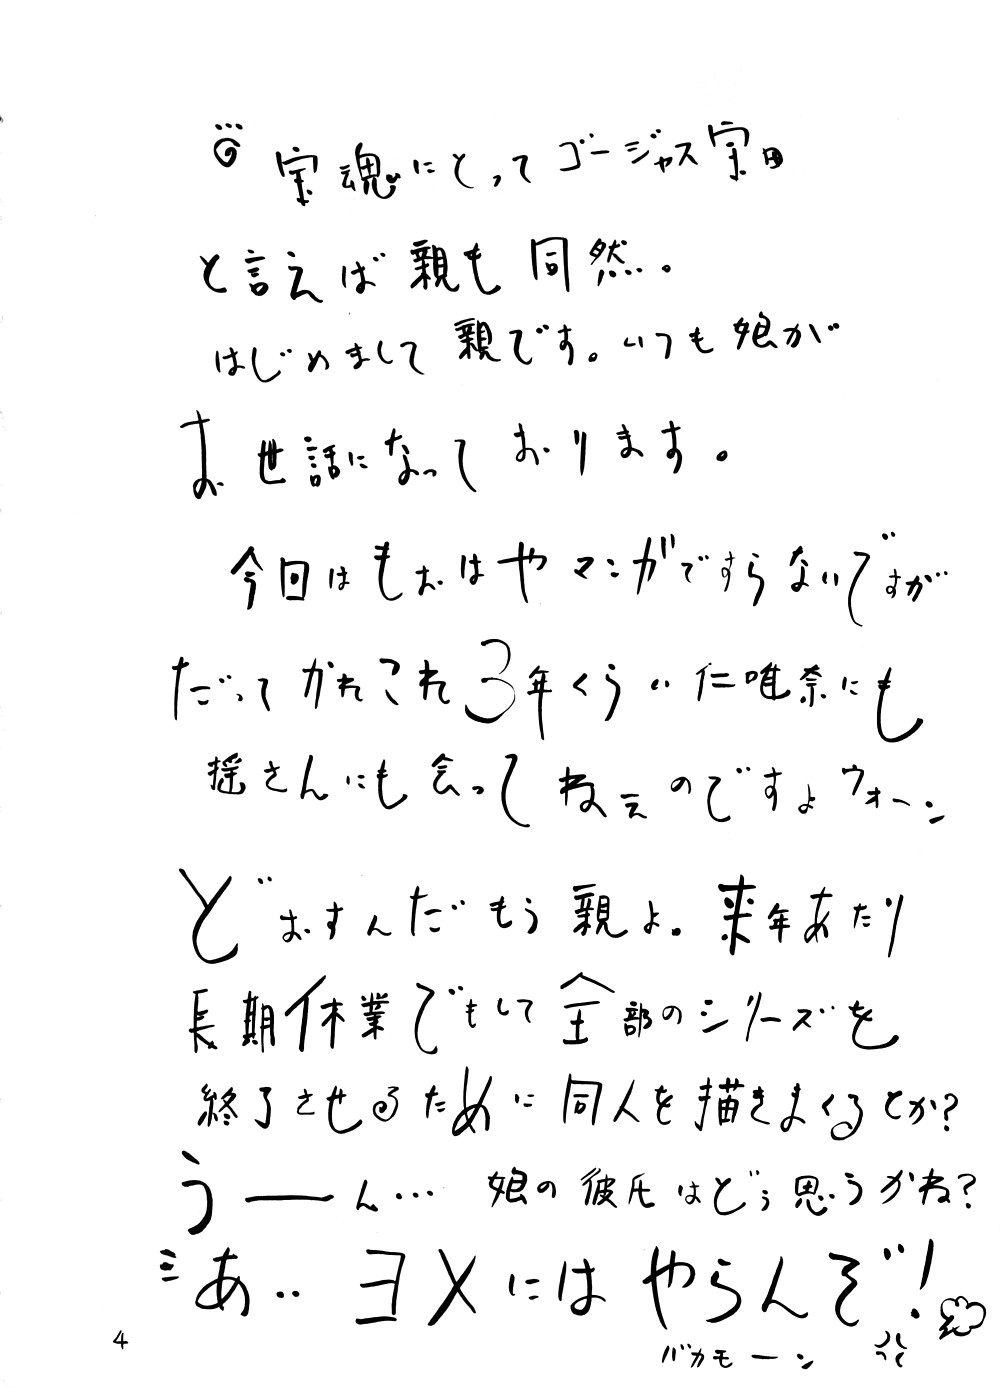 宝魂にとってゴージャス宝田
と言えば親も同然。
はじめまして親です。いつも娘が
お世話になっております。
今回はもおはやマンガですらないですが
だってかれこれ3年くらい仁唯奈にも
揺さんにも会ってねえのですよウォーン
どおすんだもう親よ。来年あたり
長期休業でもして全部のシリーズを
終了させるために同人を描きまくるとか?
うーん… 娘の彼氏はどう思うかね?
あ.. ヨメにはやらんぞ!
バカモーン
4